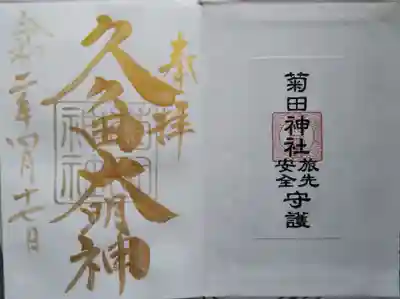 奉拝
久久田大明神
令和二年四月十七日
菊田
神社
旅先
安全
守護